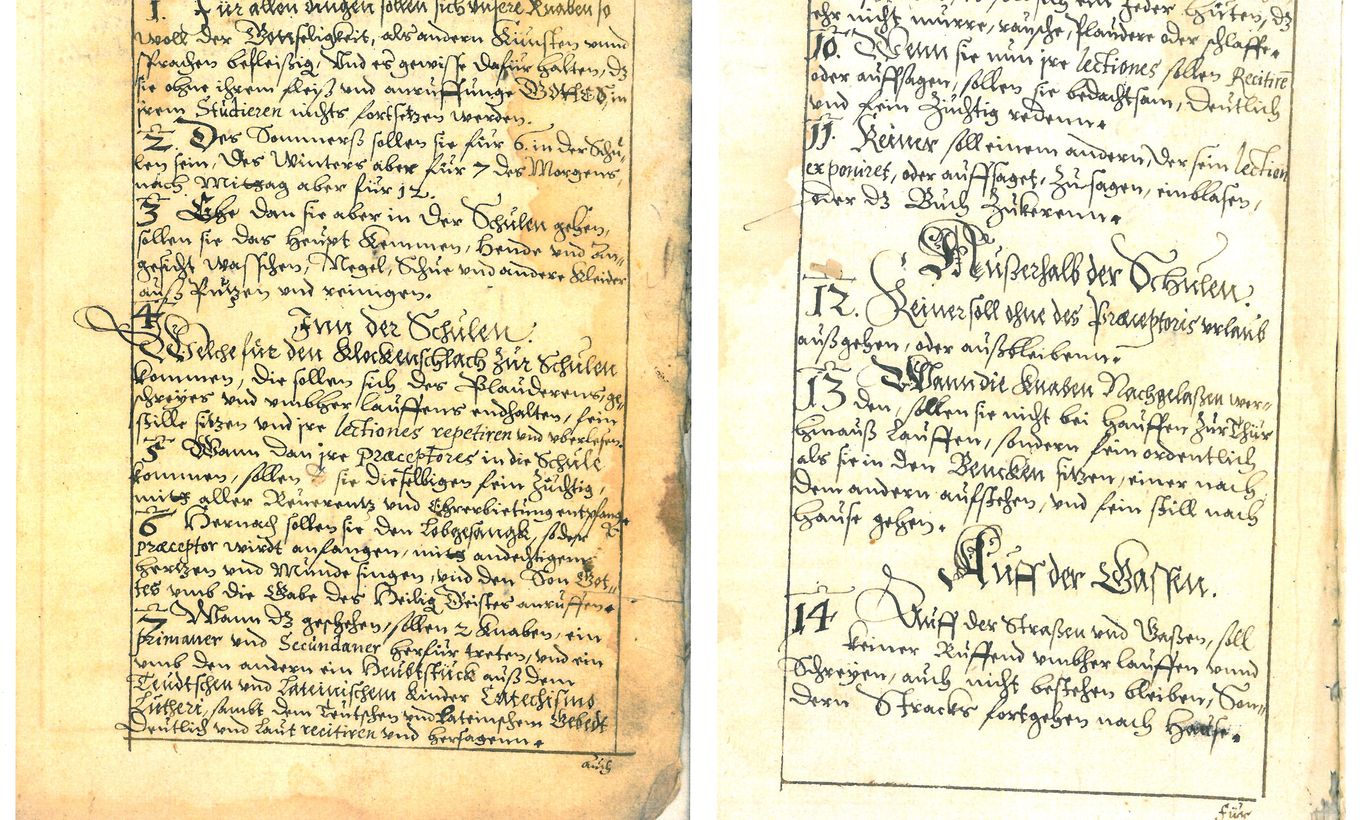 1. Für allen dingen sollen sich unsere Knaben so
woll der Gottseligkeit, als andern Künsten unnd
Sprachen befleißig, Und es gewisse dafür halten, dz
sie ohne ihrem fleiß und anruffunge GOTTES in
jrem Studieren nichts fortsetzen werden.
2. Des Sommerß sollen sie für 6. in der Schu-
len sein, Des Winters aber für 7 des Morgens,
nach Mittag aber für 12.
3 Ehe dan sie aber in der Schulen gehen,
sollen sie das Heupt Kemmen, Hende und An-
gesicht wasschen, Negel, Schue und andere Kleider
auß Putzen und reinigen.
4 Inn der Schulen.
Welche für den Klockenschlach zur Schulen
kommen, die sollen sich des Plauderens, ge-
schreyes und umbher lauffens endhalten, fein
stille sitzen und jre lectiones repetiren und uberlesen.
5 Wann dan jre Præceptores in die Schule
kommen, sollen sie dieselbigen fein züchtig,
mitt aller Reverentz und Ehrerbietung entpfange
6 Hernach sollen sie den Lobgesangk, so der
præceptor wirdt anfangen, mitt andechtigem
hertzen und Munde singen, und den Son Got-
tes umb die Gabe des Heilig Geistes anruffen.
7 Wann dz geschehen, sollen 2 Knaben, ein
primaner und Secundaner herfür treten, und ein
umb den andern ein Heubtstück auß dem
Teudtschen und Lateinischem Kinder Catechismo
Lutheri, sambt dem Teutschen und Lateinschem Gebedt
Deutlich und laut recitiren und hersagenn.
auch
ein Jeder hüten, dz
ehr nicht murre, rausche, Plaudere oder schlaffe.
10. Wenn sie nun jre lectiones sollen Recitirē
oder auffsagen, sollen sie bedachtsam, Deutlich
und fein züchtig redenn.
11. Keiner soll einem andern, der sein lection
exponiret, oder auffsaget, zu sagen, einblasen,
oder dz Buch zukerenn.
Außerhalb der Schulen.
12. Keiner soll ohne des Præceptoris urlaub
außgehen, oder außbleibenn.
13 Wann die Knaben Nachgelaßen wer-
den, sollen sie nicht bei Hauffen zur Thür
hinauß lauffen, sondern fein ordentlich
als sie in den Bencken sitzen, einer nach
dem andern aufstehen, und fein still nach
Hause gehen.
Auff der Gassen.
14 Auff der Straßen und Gaßen, soll
keiner Ruffend umbher lauffen unnd
Schreyen, auch nicht bestehen bleiben, Son-
dern Stracks fortgehen nach Hause.
Für